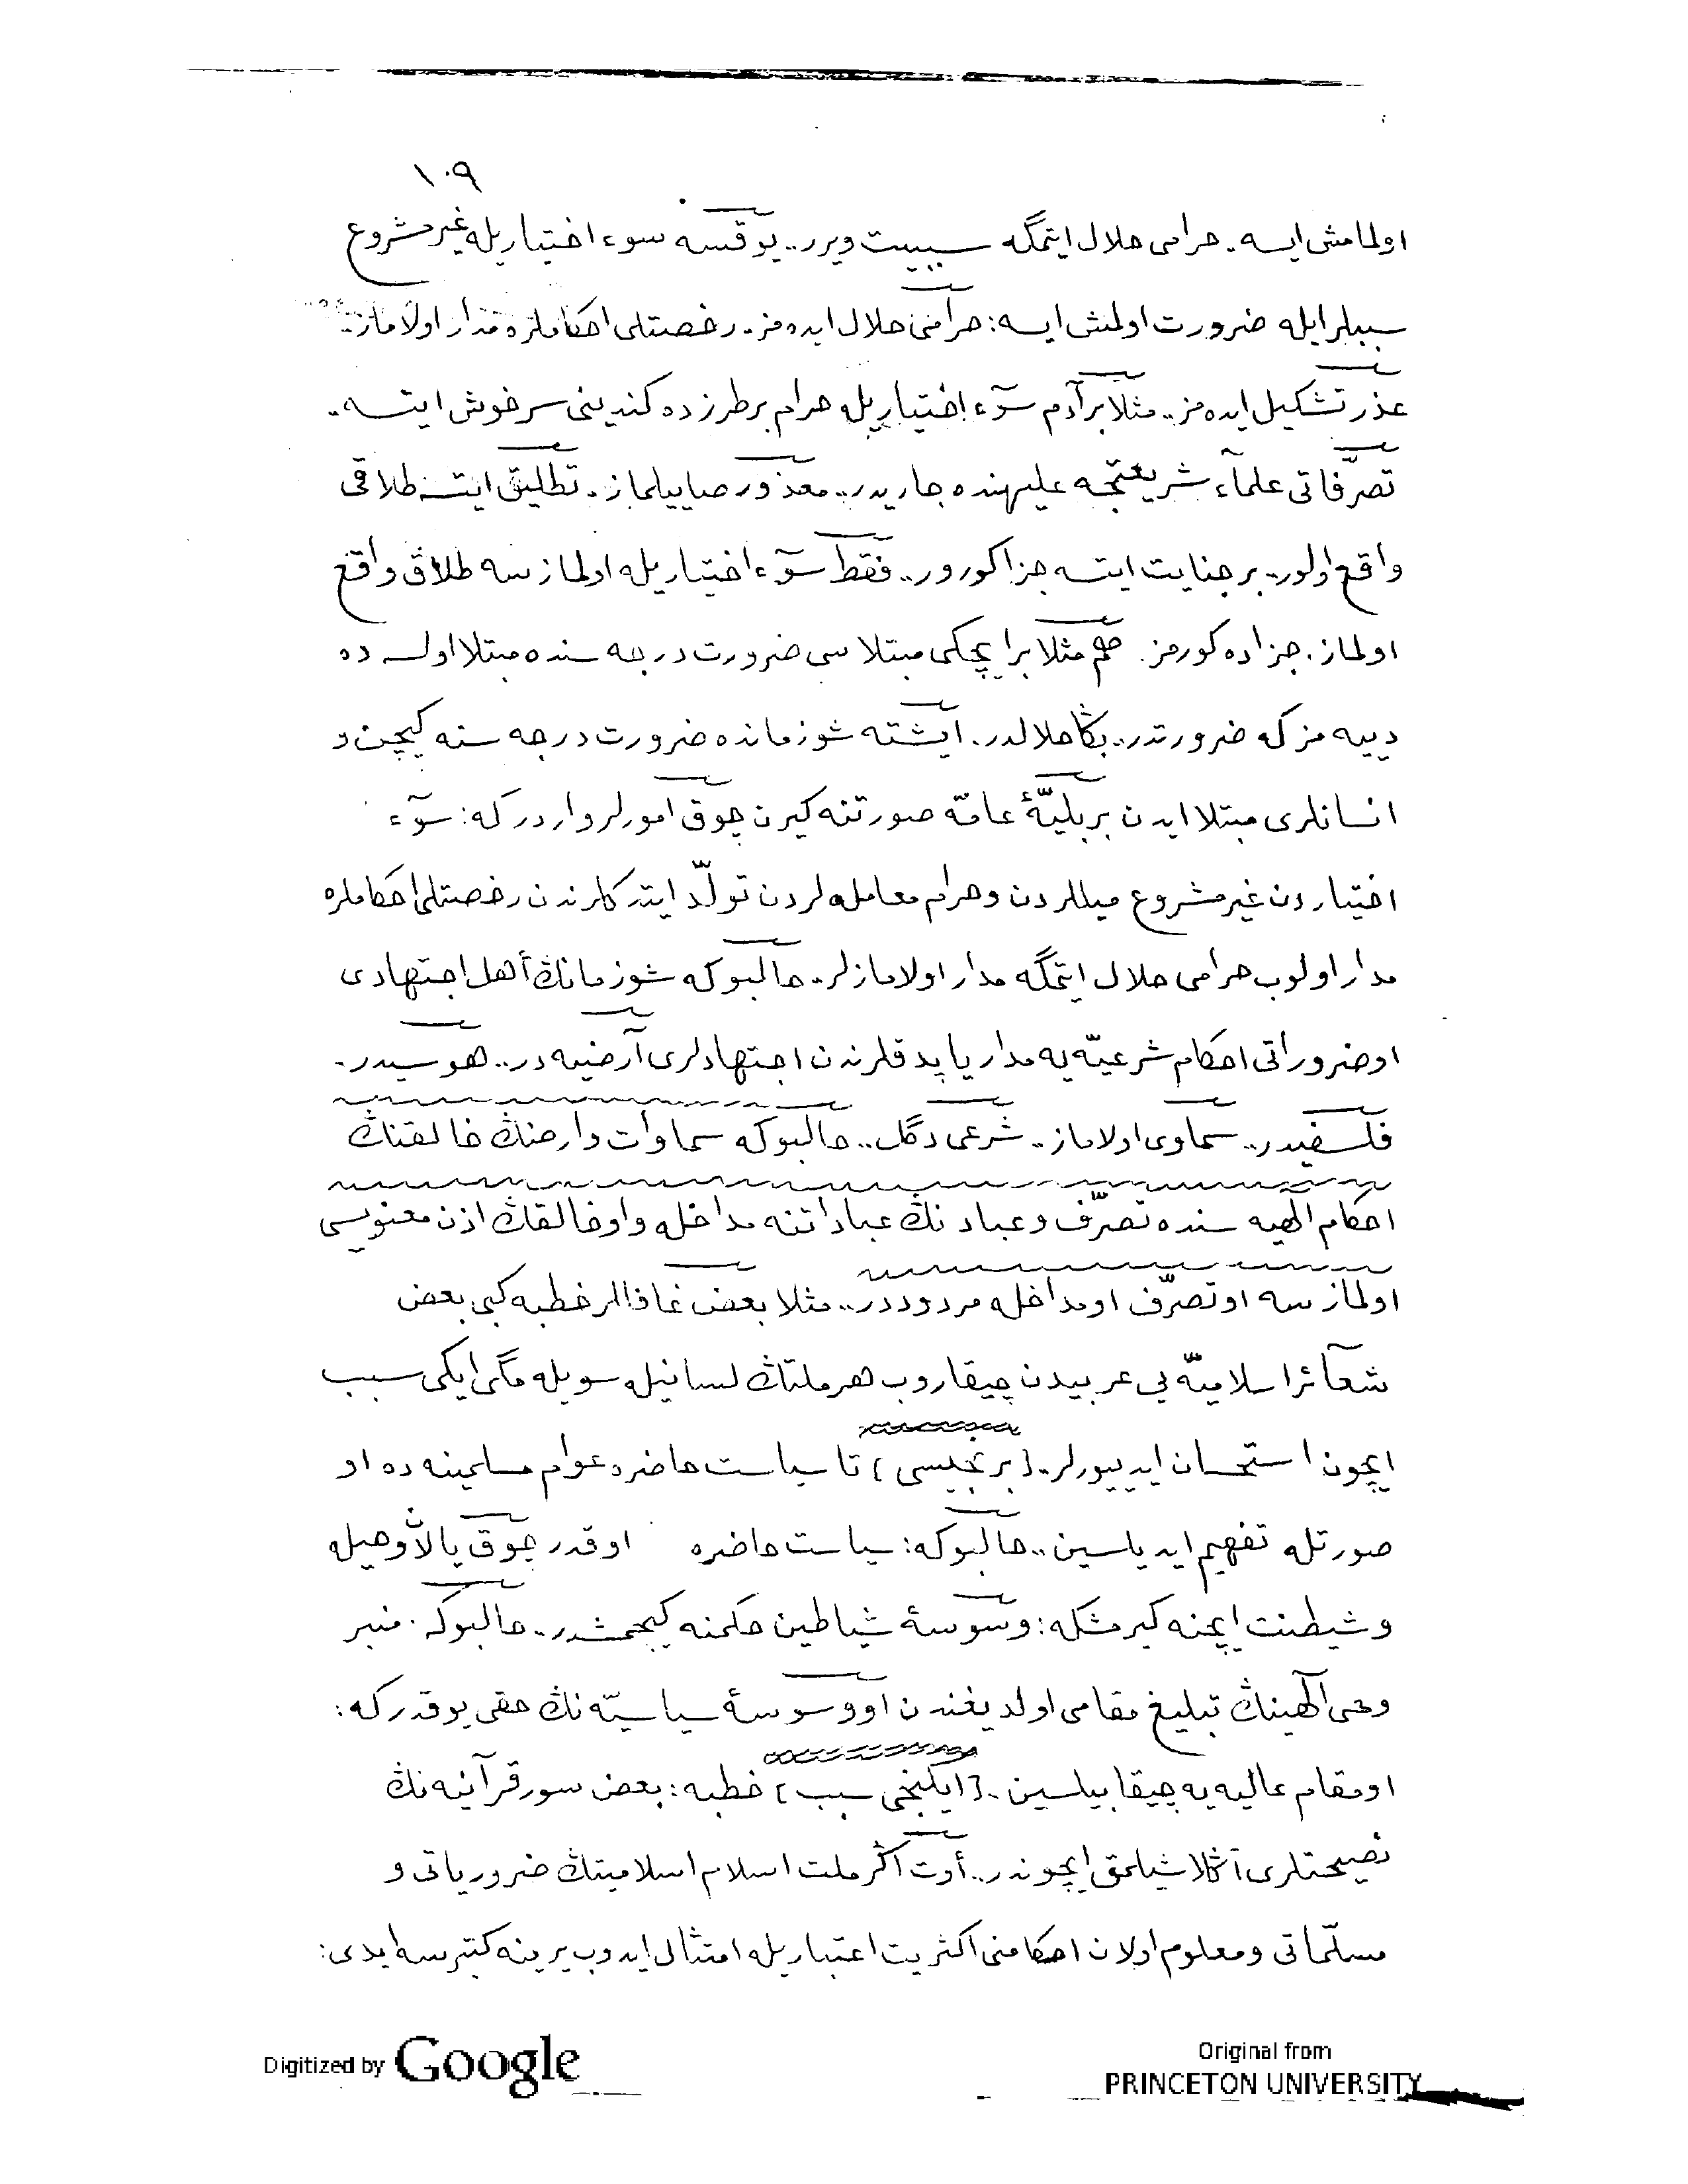 ١٠٩
اولمامش ايسه. حرامى حلال ايتمگه سببيت ويرر.. يوقسه سوء اختياريله غير مشروع
سببلر ايله ضرورت اولمش ايسه: حرامى حلال ايده مز. رخصتلى احكاملره مدار اولاماز.
عذر تشكيل ايده مز.. مثلا بر آدم سوء اختياريله حرام بر طرزده كنديني سرخوش ايتسه.
تصرّفاتى علماء شريعتجه عليهنده جاريدر.. معذور صاييلماز. تطليق ايتسه طلاقى
واقع اولور.. بر جنايت ايتسه جزا كورور.. فقط سوء اختياريله اولمازسه طلاق واقع
اولماز. جزاده كورمز. هم مثلا بر ايچكى مبتلاسى ضرورت درجه سنده مبتلا اولسه ده
دييه مز كه ضرورتدر.. بڭا حلالدر. ايشته شو زمانده ضرورت درجه سنه كيچن و
انسانلرى مبتلا ايدن بر بليّۀ عامّه صورتنه كيرن چوق امورلر واردر كه: سوء
اختياردن غير مشروع ميللردن و حرام معامله لردن تولّد ايتدكلرندن رخصتلى احكاملره
مدار اولوب حرامى حلال ايتمگه مدار اولامازلر. حالبوكه شو زمانڭ أهل اجتهادى
او ضروراتى احكام شرعيّه يه مدار ياپدقلرندن اجتهادلرى آرضيه در.. هوسيدر.
فلسفيدر.. سماوى اولاماز.. شرعى دگل.. حالبوكه سماوات و ارضڭ خالقنڭ
احكام الٓهيه سنده تصرّف و عبادنڭ عباداتنه مداخله و او خالقڭ اذن معنويسى
اولمازسه او تصرّف او مداخله مردوددر.. مثلا بعض غافللر خطبه كبى بعض
شعآئر اسلاميّه يى عربيدن چيقاروب هر ملتڭ لسانيله سويله مگى ايكى سبب
ايچون استحسان ايدييورلر. [ برنجيسى ] تا سياست حاضره عوام مسلمينه ده او
صورتله تفهيم ايديلسين.. حالبوكه: سياست حاضره اوقدر چوق يالان و حيله
و شيطنت ايچنه كيرمشكه: وسوسۀ شياطين حكمنه كيچمشدر.. حالبوكه. منبر
وحى الٓهينڭ تبليغ مقامى اولديغندن او وسوسۀ سياسيّه نڭ حقى يوقدر كه:
او مقام عاليه يه چيقابيلسين. [ ايكنجى سبب ] خطبه: بعض سور قرآنيه نڭ
نصيحتلرى آڭلاشيلمق ايچوندر.. أوت اگر ملت اسلام اسلاميتڭ ضرورياتى و
مسلّماتى و معلوم اولان احكامنى اكثريت اعتباريله امتثال ايدوب يرينه كتيرسه ايدى:
Digitized by Google
Original from
PRINCETON UNIVERSITY